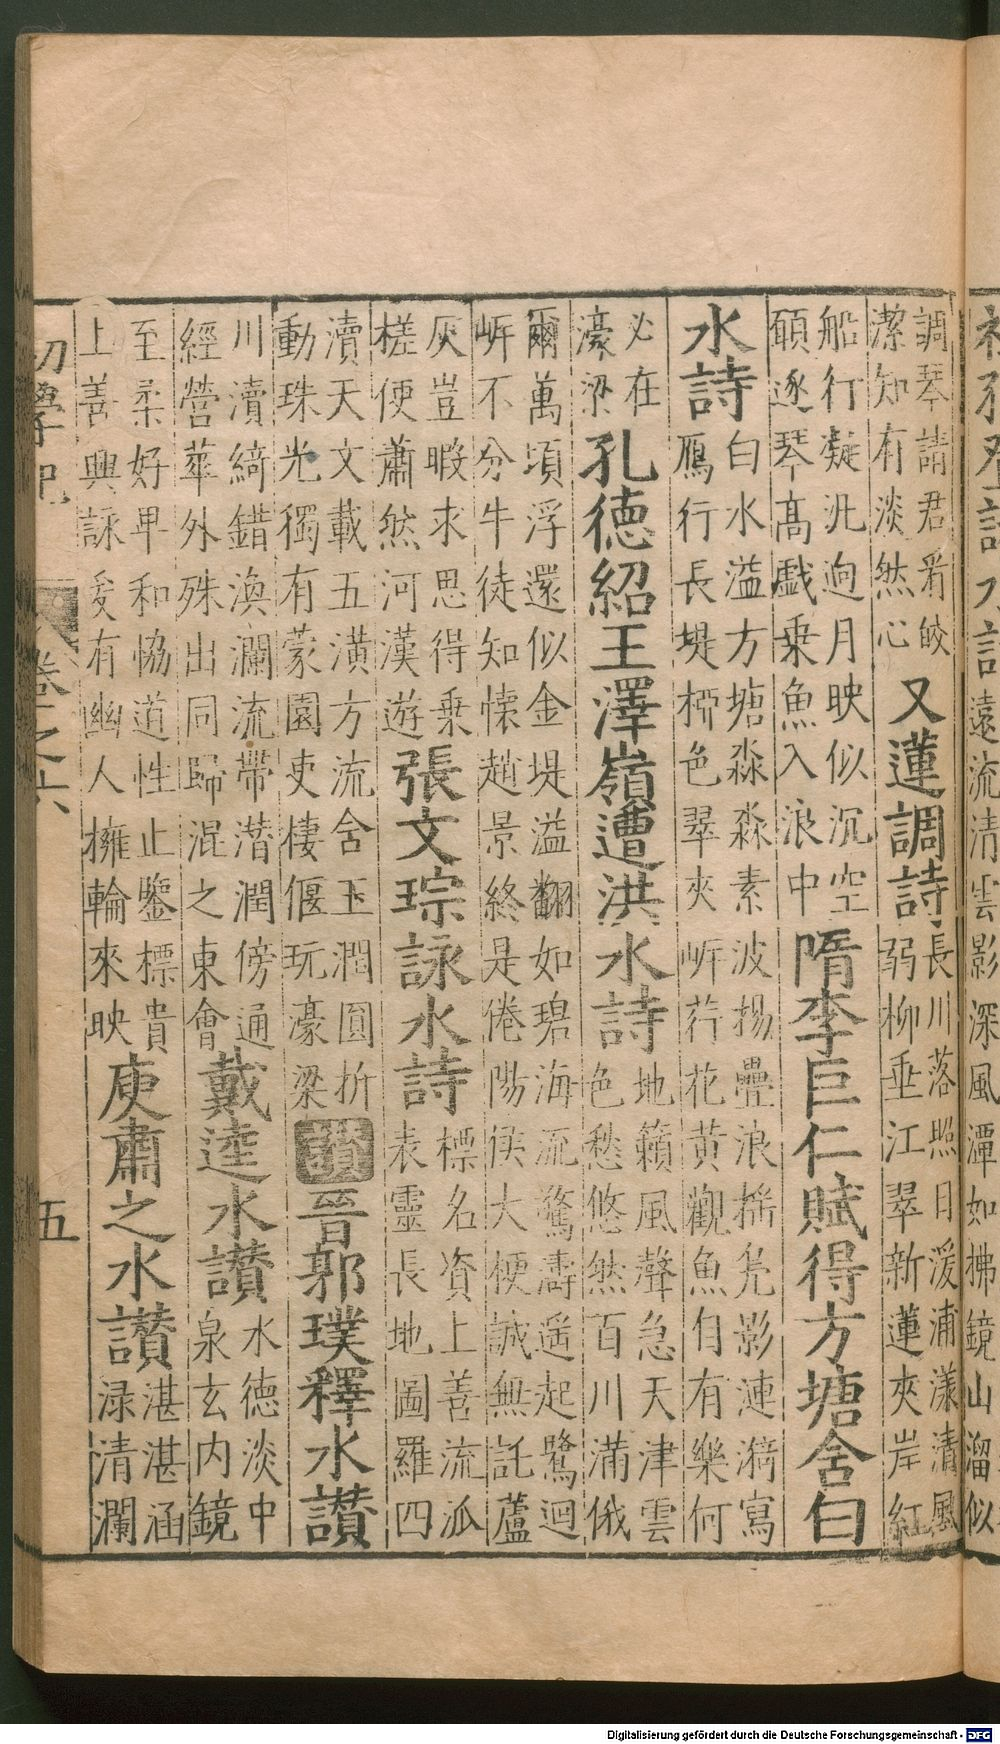 遠流清雲影深風潭如拂鏡山溜似
調琴請君看皎
潔知有淡然心
又蓮調詩
長川落照日深浦漾清風
弱柳垂江翠新蓮夾岸紅
船行凝沘逈月映似沉空
願逐琴髙戲乗魚入浪中
隋李巨仁賦得方塘含白
水詩
白水溢方塘淼淼素波揚疊浪搖鳬影漣漪寫
鴈行長堤椏色翠夾岍荇花黃觀魚自有樂何
必在
濠梁
孔德紹王澤嶺遭洪水詩
地籟風聲急天津雲
色愁悠然百川滿俄
爾萬頃浮還似金堤溢翻如碧海流驚濤遥起鷺迴
岍不分牛徒知懐趙景終是倦陽侯大梗誠無託蘆
灰豈暇求思得乗
槎便蕭然河漢遊
張文琮詠水詩
標名資上善流泒
表靈長地圖羅四
瀆天文載五潢方流含玉潤圓折
動珠光獨有蒙園吏棲偃玩濠梁
讃
晉郭璞釋水讃
川瀆綺錯渙瀾流帶潜潤傍通
經營華外殊出同歸混之東會
戴逵水讃
水德淡中
泉玄内鏡
至柔好卑和恊道性止鑒標貴
上善興詠爰有幽人擁輪來映
庾肅之水讃
湛湛涵
渌清瀾
初學記
卷之六
五
Digitalisierung gefördert durch die Deutsche Forschungsgemeinschaft - DFG